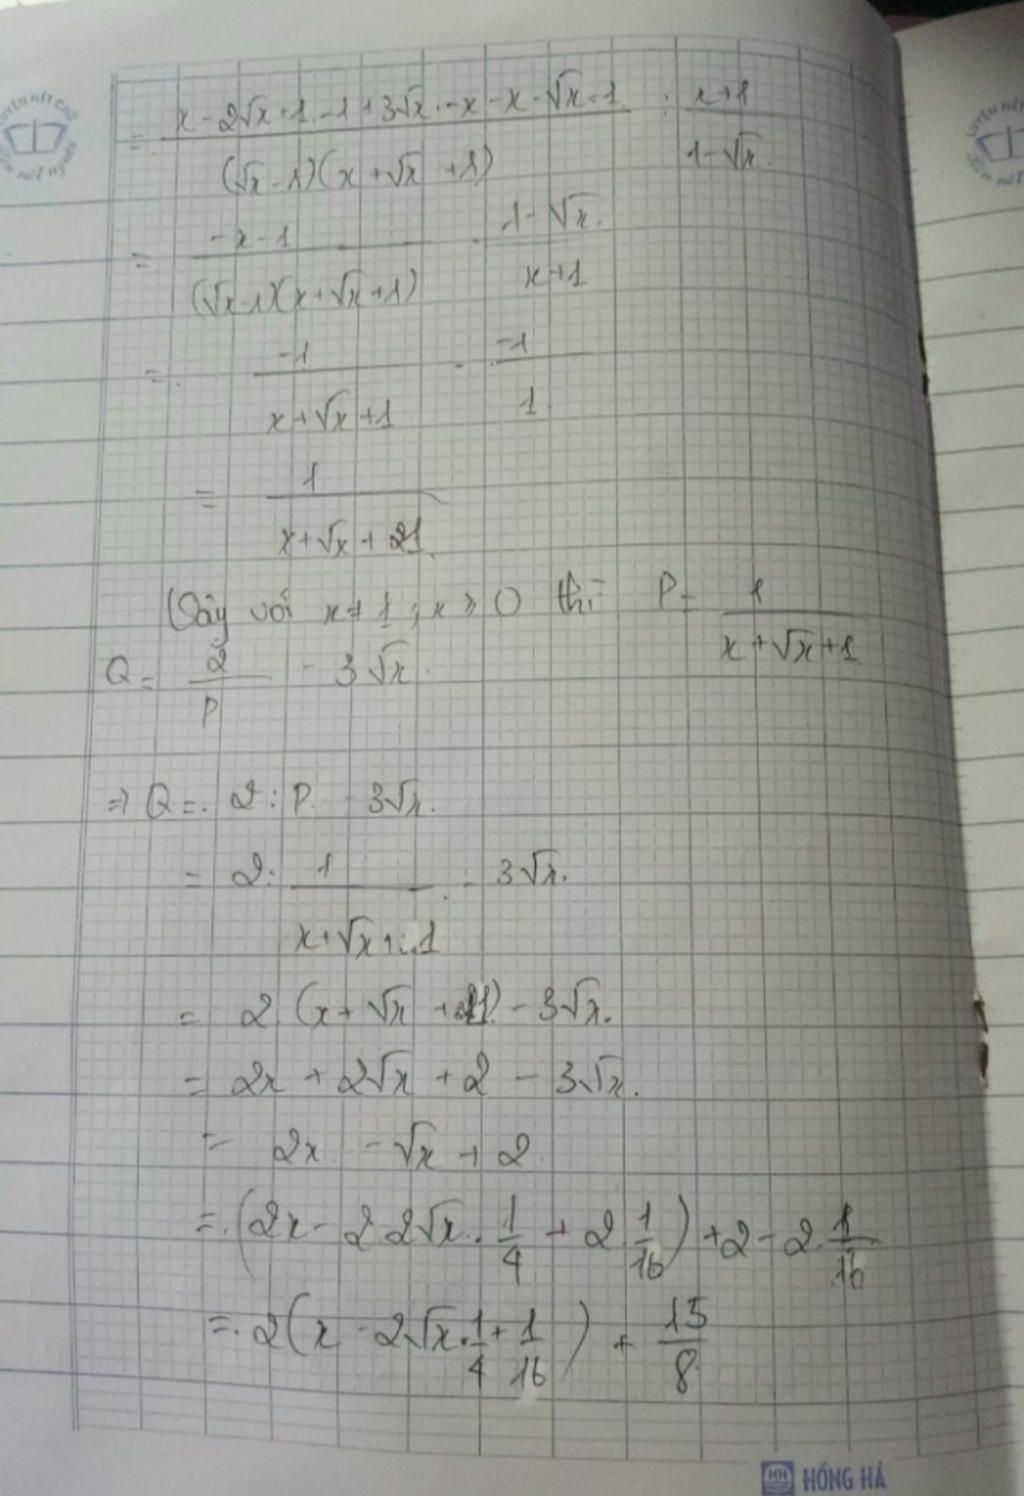 = x - 2√x + 1 - 1 + 3√x - x - x - √x - 1 / (√x - 1)(x + √x + 1) : x+1 / 1-√x
= -x-1 / (√x-1)(x+√x+1) . 1-√x / x+1
= -1 / x+√x+1 . -1 / 1
= 1 / x+√x+21
(Vậy với x ≠ 1 ; x ≥ 0 thì P = 1 / x+√x+1
Q = 2/P - 3√x
=> Q = 2 : P - 3√x.
= 2 : 1 / x+√x+1 - 3√x.
= 2.(x + √x + 1) - 3√x.
= 2x + 2√x + 2 - 3√x.
= 2x - √x + 2
= (2x - 2.2√x . 1/4 + 2 1/16) + 2 - 2.1/16
= 2(x - 2√x.1/4 + 1/16) + 15/8
HỒNG HÀ